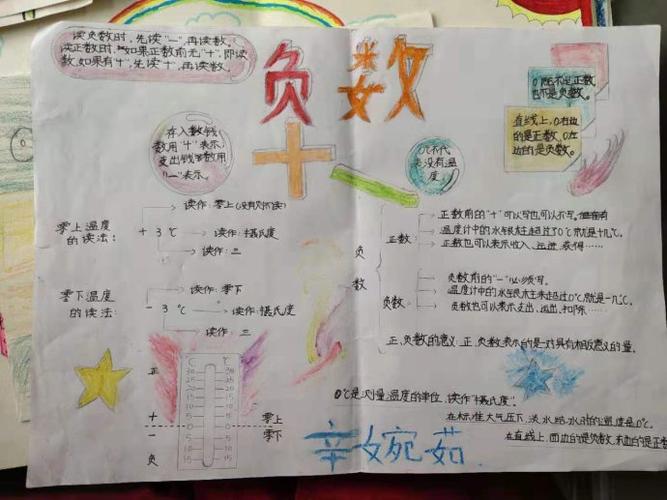 读负数时,先读"一",再读数。
读正数时,如果正数前无"十",即读
数,如果有"十",先读十,再读数。
负数
十 一
存入数钱
数用"十"表示,
支出钱数用
"一"表示。
0℃不代
表没有温
度。
0既不是正数,
也不是负数。
直线上,0右边
的是正数,0左
边的是负数。
零上温度
的读法:
+3℃
读作:零上(没有负不读)
读作:摄氏度
读作:三
零下温度
的读法:
-3℃
读作:零下
读作:摄氏度
读作:三
负数
正数:
正数前的"十"可以写也可以不写。
温度计中的水银柱超过了0℃就是十几℃。
正数也可以表示收入、运进、获得……
负数:
负数前的"一"必须写。
温度计中的水银柱未超过0℃,就是一几℃。
负数也可以表示支出,运出,扣除……
正、负数的意义:正、负数表示的是一对具有相反意义的量。
℃ ℃
正
30 30
25 25
20 20
15 15
10 10
5 5
+ 0 0 零上
- 5 5 零下
10 10
负 15 15
℃是测量温度的单位,读作"摄氏度"。
在标准大气压下,淡水结冰时的温度是0℃。
在直线上,
辛婉茹